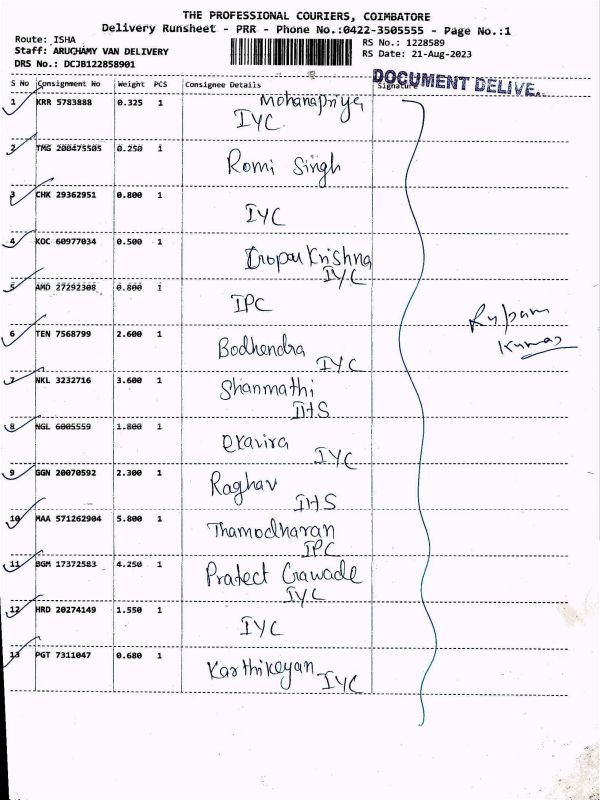 THE PROFESSIONAL COURIERS, COIMBATORE
Delivery Runsheet - PRR - Phone No.:0422-3505555 - Page No.:1
Route: ISHA
RS No.: 1228589
Staff: ARUCHAMY VAN DELIVERY
RS Date: 21-Aug-2023
DRS No.: DCJB122858901
DOCUMENT DELIVE.
S No Consignment No Weight PCS Consignee Details Signature
1 KRR 5783888 0.325 1 Mohanapriya
IYC
2 TMG 200475505 0.250 1
Romi Singh
3 CHK 29362951 0.800 1
IYC
4 KOC 60977034 0.500 1
Gopal Krishna
IYC
5 AMD 27292308 0.800 1
IPC
Rupam
Kumar
6 TEN 7568799 2.600 1
Bodhendra
IYC
7 NKL 3232716 3.600 1
Shanmathi
IHS
8 NGL 6005559 1.800 1
ekavira
IYC
9 GGN 20070592 2.300 1
Raghav
IHS
10 MAA 571262904 5.800 1
Thamodharan
IPC
11 BGM 17372583 4.250 1
Pratect Gawade
IYC
12 HRD 20274149 1.550 1
IYC
13 PGT 7311047 0.680 1
Karthikeyan
IYC